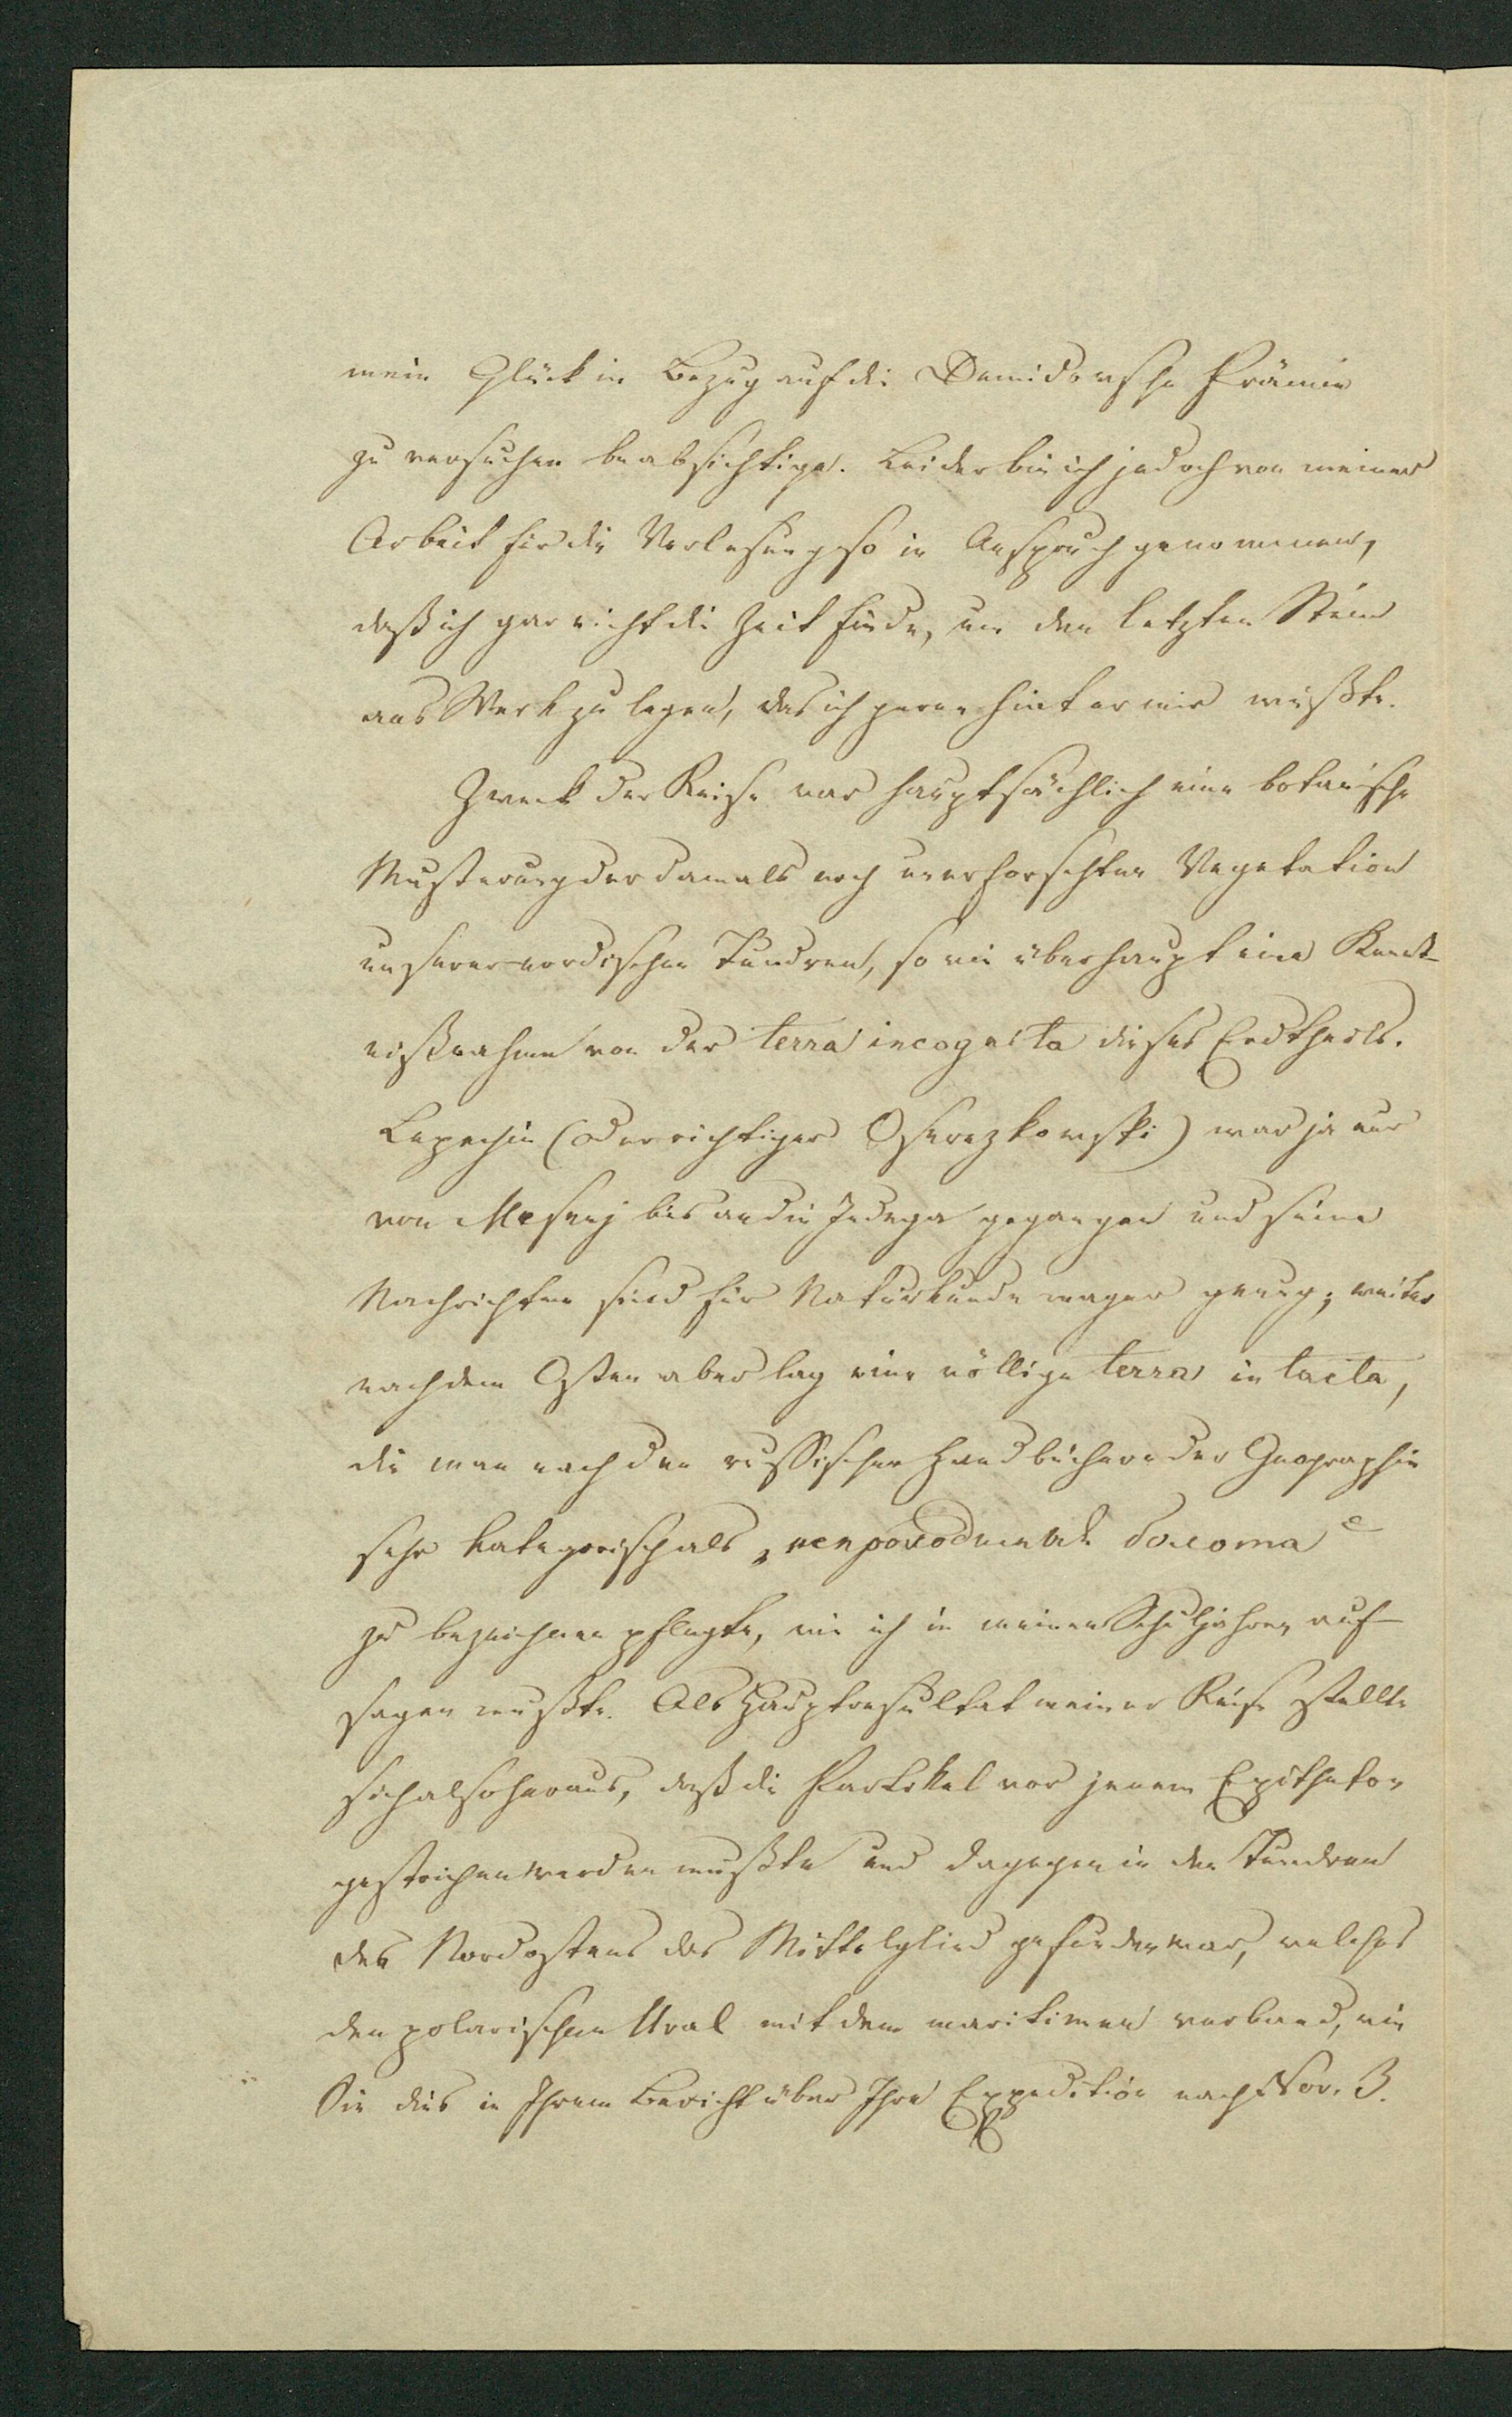 mein Glück in Bezug auf die Demidowsche Prämie
zu versuchen beabsichtige. Leider bin ich jedoch von meiner
Arbeit für die Vorlesung so in Anspruch genommen,
daß ich gar nicht die Zeit finde, um den letzten Stein
ans Werk zu legen, das ich gerne hinter mir wüßte.
Zweck der Reise war hauptsächlich eine botanische
Musterung der damals noch unerforschten Vegetation
unserer nordischen Tundren, so wie überhaupt eine Kennt-
nißnahme von der terra incognita dieses Erdtheils.
Lepechin (oder richtiger Oserezkowski) war ja nur
von Mesenj bis an die Indega gegangen und seine
Nachrichten sind für Naturkunde mager genug; weiter
nach dem Osten aber lag eine völlige terra intacta,
die man nach den russischen Handbüchern der Geographie
sehr kategorisch als „непроходимыя болота“
zu bezeichnen pflegte, wie ich in meinen Schuljahren auf-
sagen mußte. Als Hauptresultat meiner Reise stellte
sich also heraus, daß die Partikel vor jenem Epitheton
gestrichen werden mußte und dagegen in den Tundren
des Nordostens das Mittelglied gefunden war, welches
den polarischen Ural mit dem maritimen verband, wie
Sie dies in Ihrem Bericht über Ihre Expedition nach Nov. З.